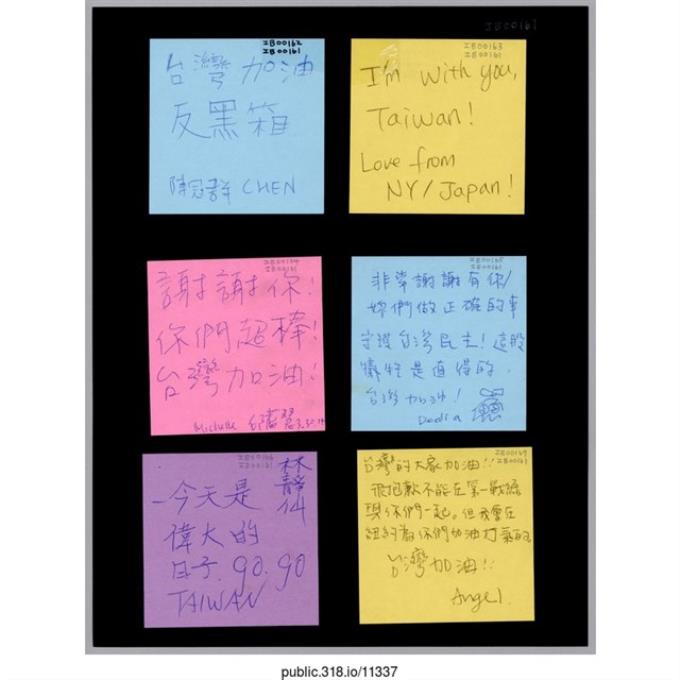 IB00161
IB00162
IB00161
台灣加油
反黑箱
CHEN
IB00163
IB00161
I'm with you,
Taiwan!
Love from
NY/Japan!
IB00164
IB00161
謝謝你!
你們超棒!
台灣加油!
Michelle
IB00165
IB00161
非常謝謝有你/
妳們做正確的事
守護台灣民主!這股
犧牲是值得的.
台灣加油!
IB00166
IB00161
林靜仙
今天是
偉大的
日子. go. go
TAIWAN
IB00161
台灣的大家加油!!
很抱歉不能在第一戰線
與你們一起。但我會在
紐約為你們加油打氣的
台灣加油!!
Angel.
public.318.io/11337